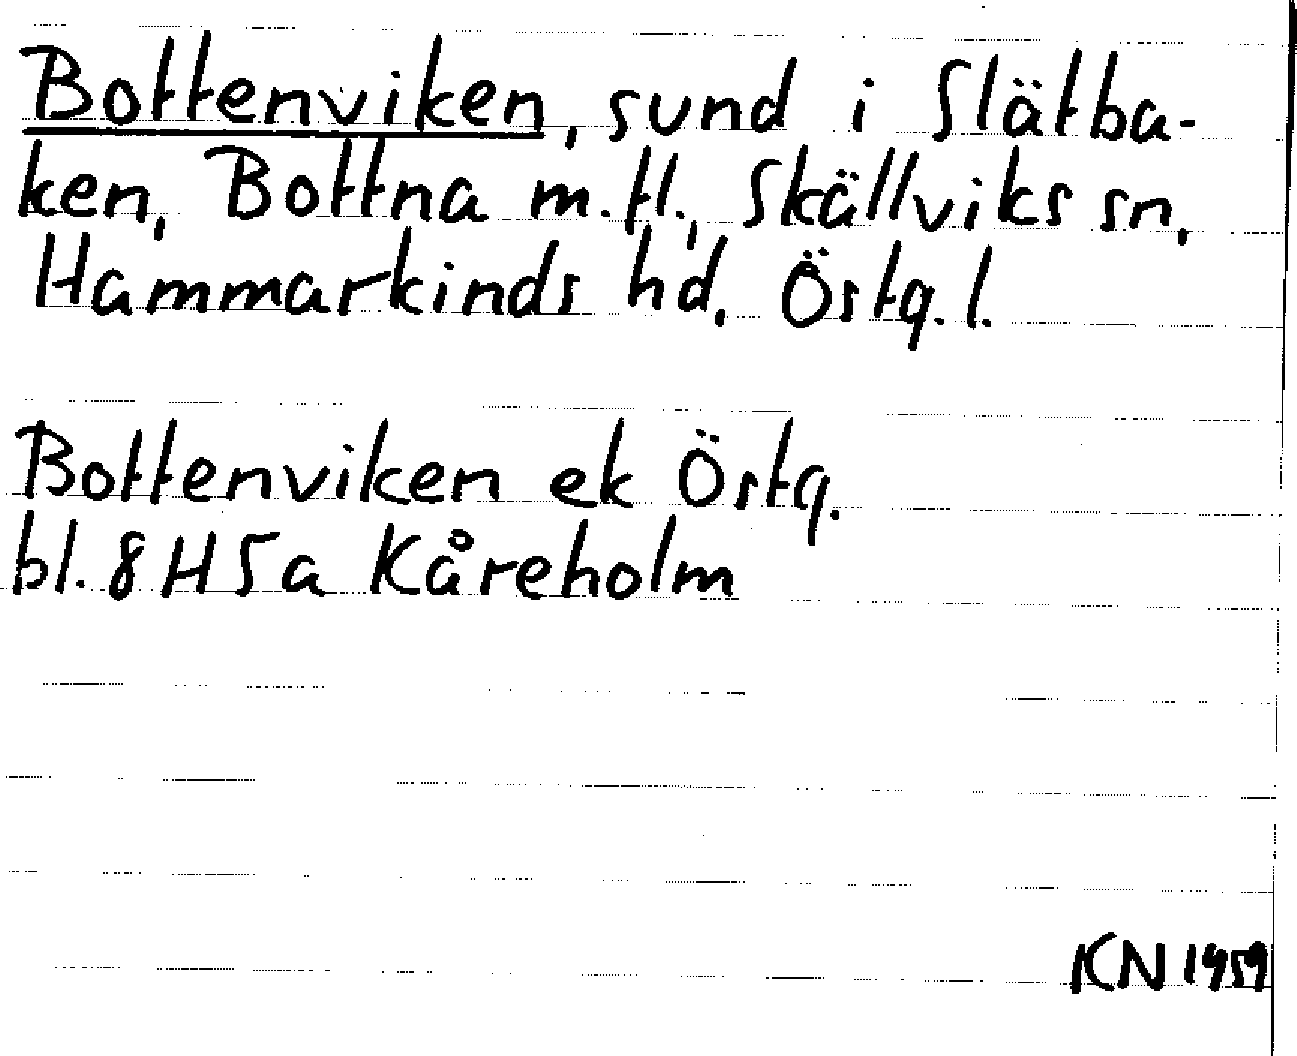 Bottenviken, sund i Slätba-
ken, Bottna m.fl., Skällviks sn,
Hammarkinds hd, Östg. l.
Bottenviken ek Östg.
bl. 8 H 5 a Kåreholm
KN 1959